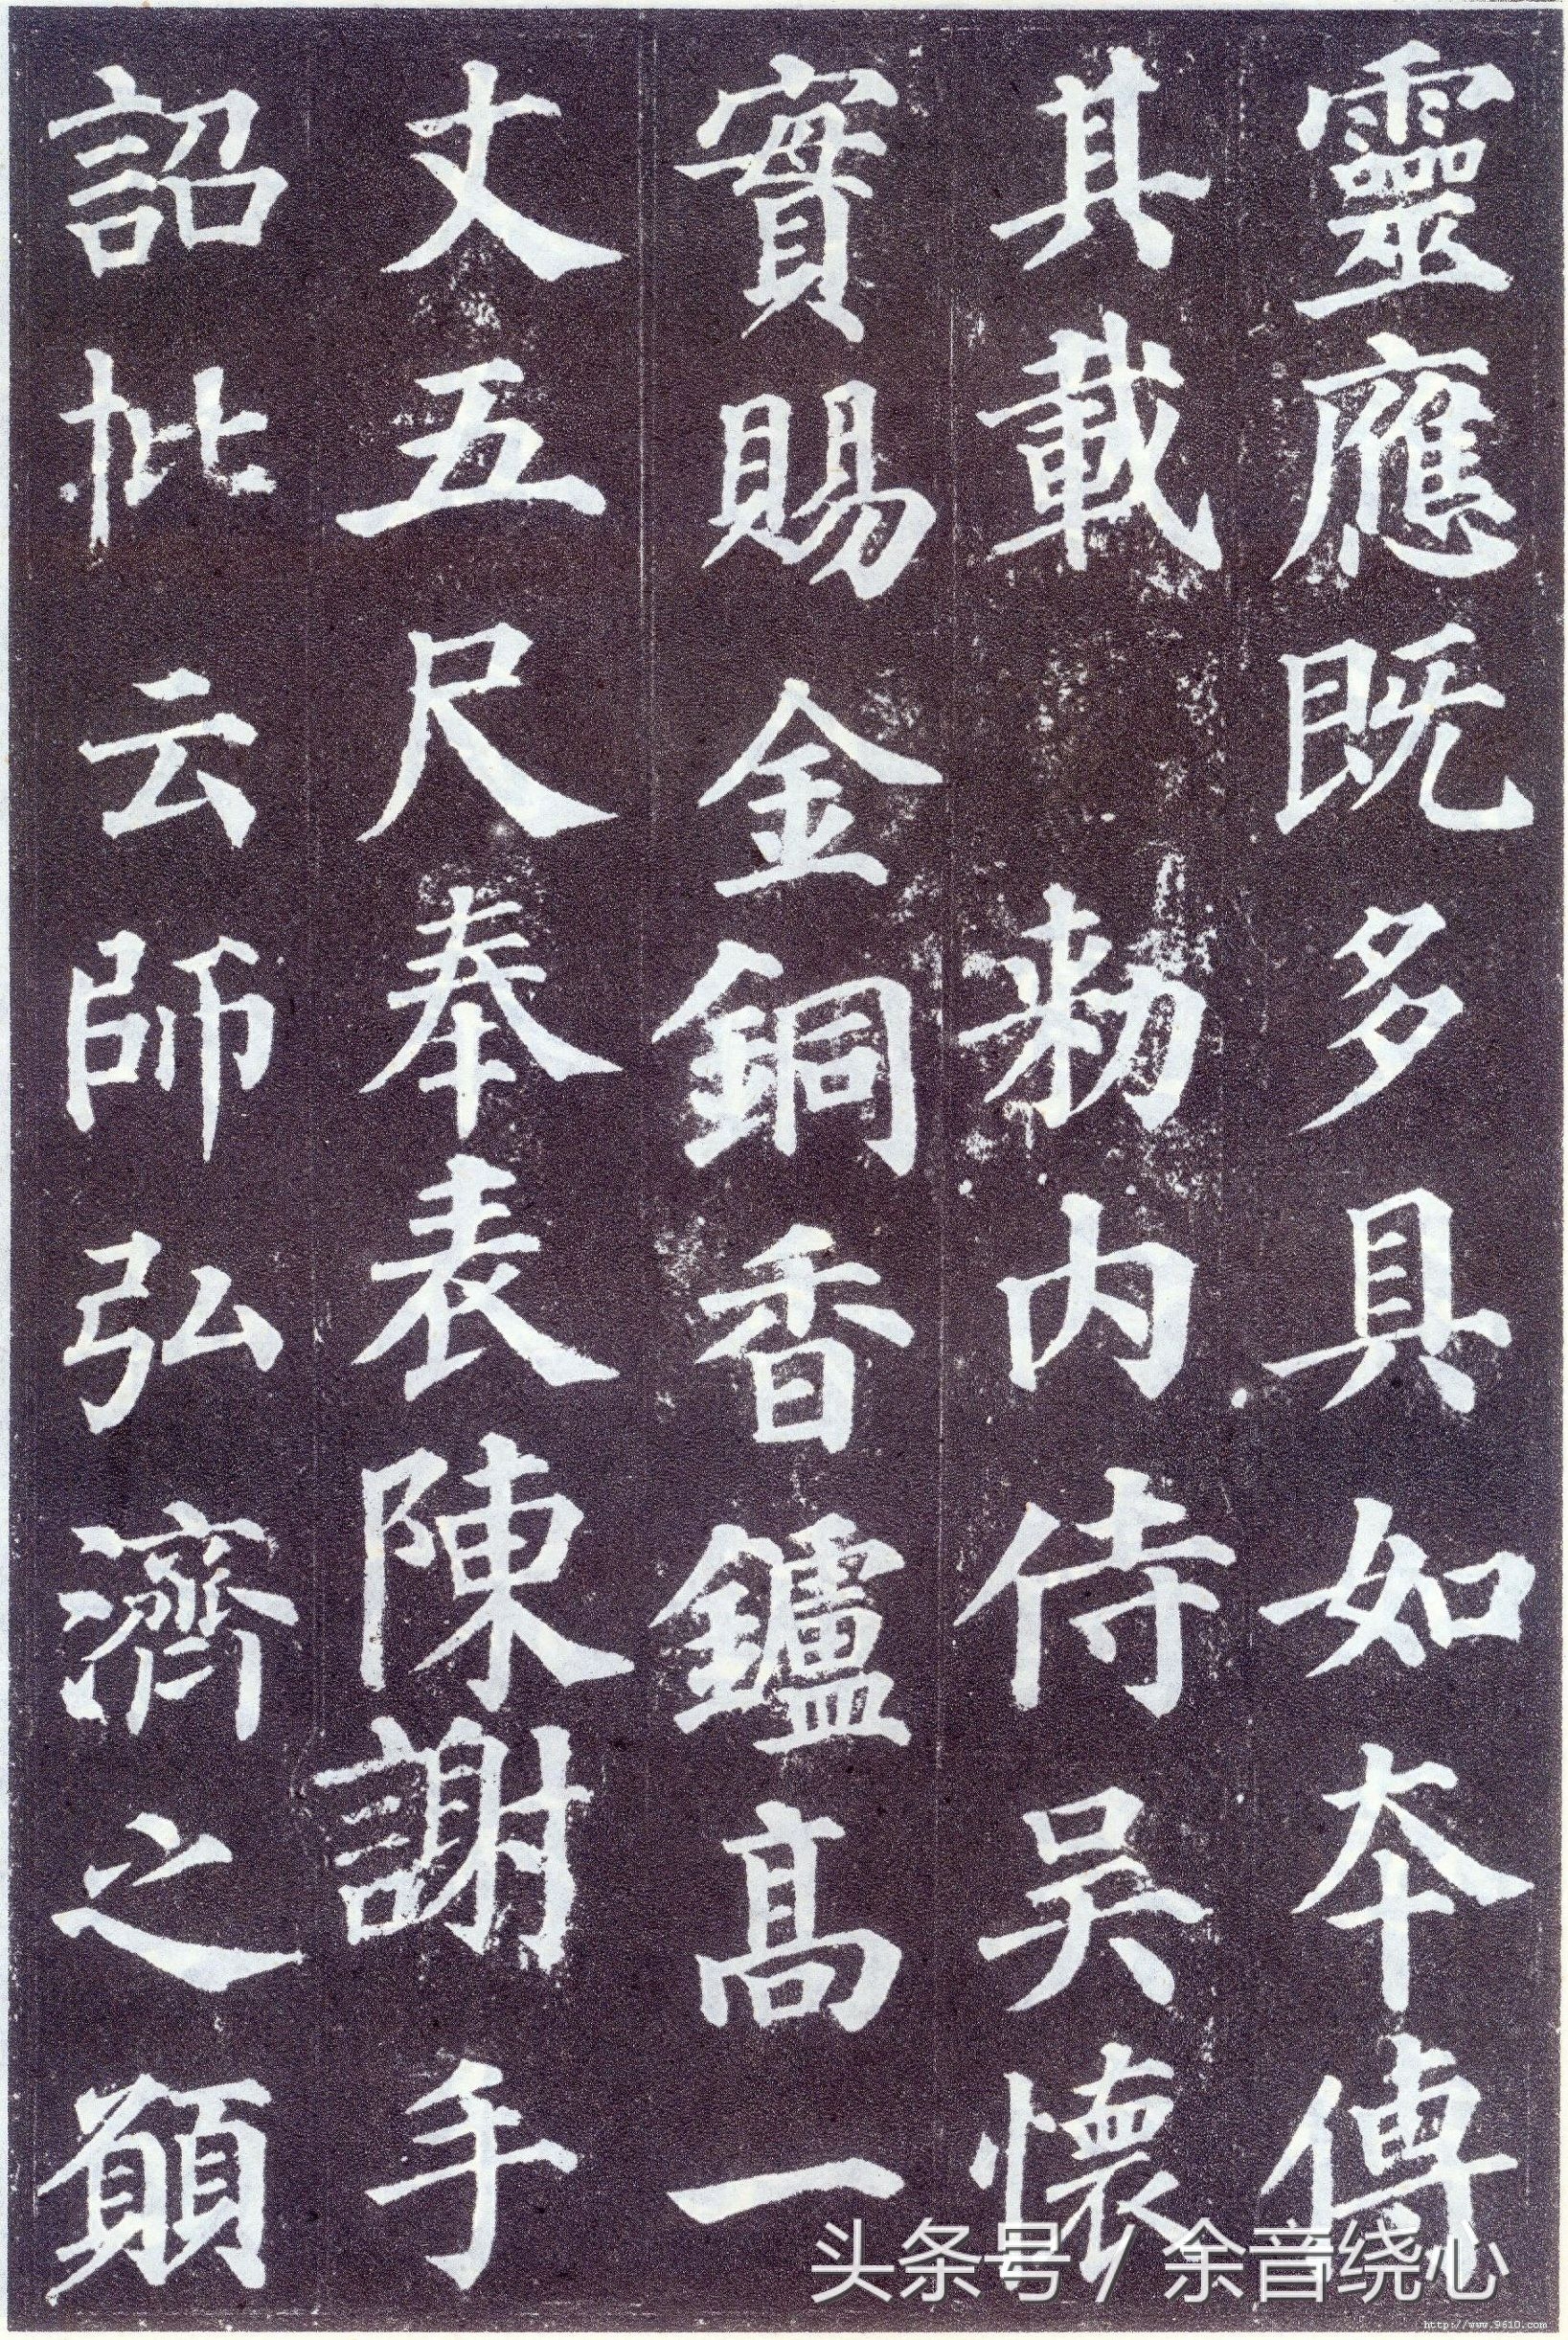 靈應既多具如本傳
其載 勑內侍吳懷
實賜金銅香鑪高一
丈五尺奉表陳謝手
詔批云師弘濟之願
头条号 / 余音绕心
http://www.9610.com